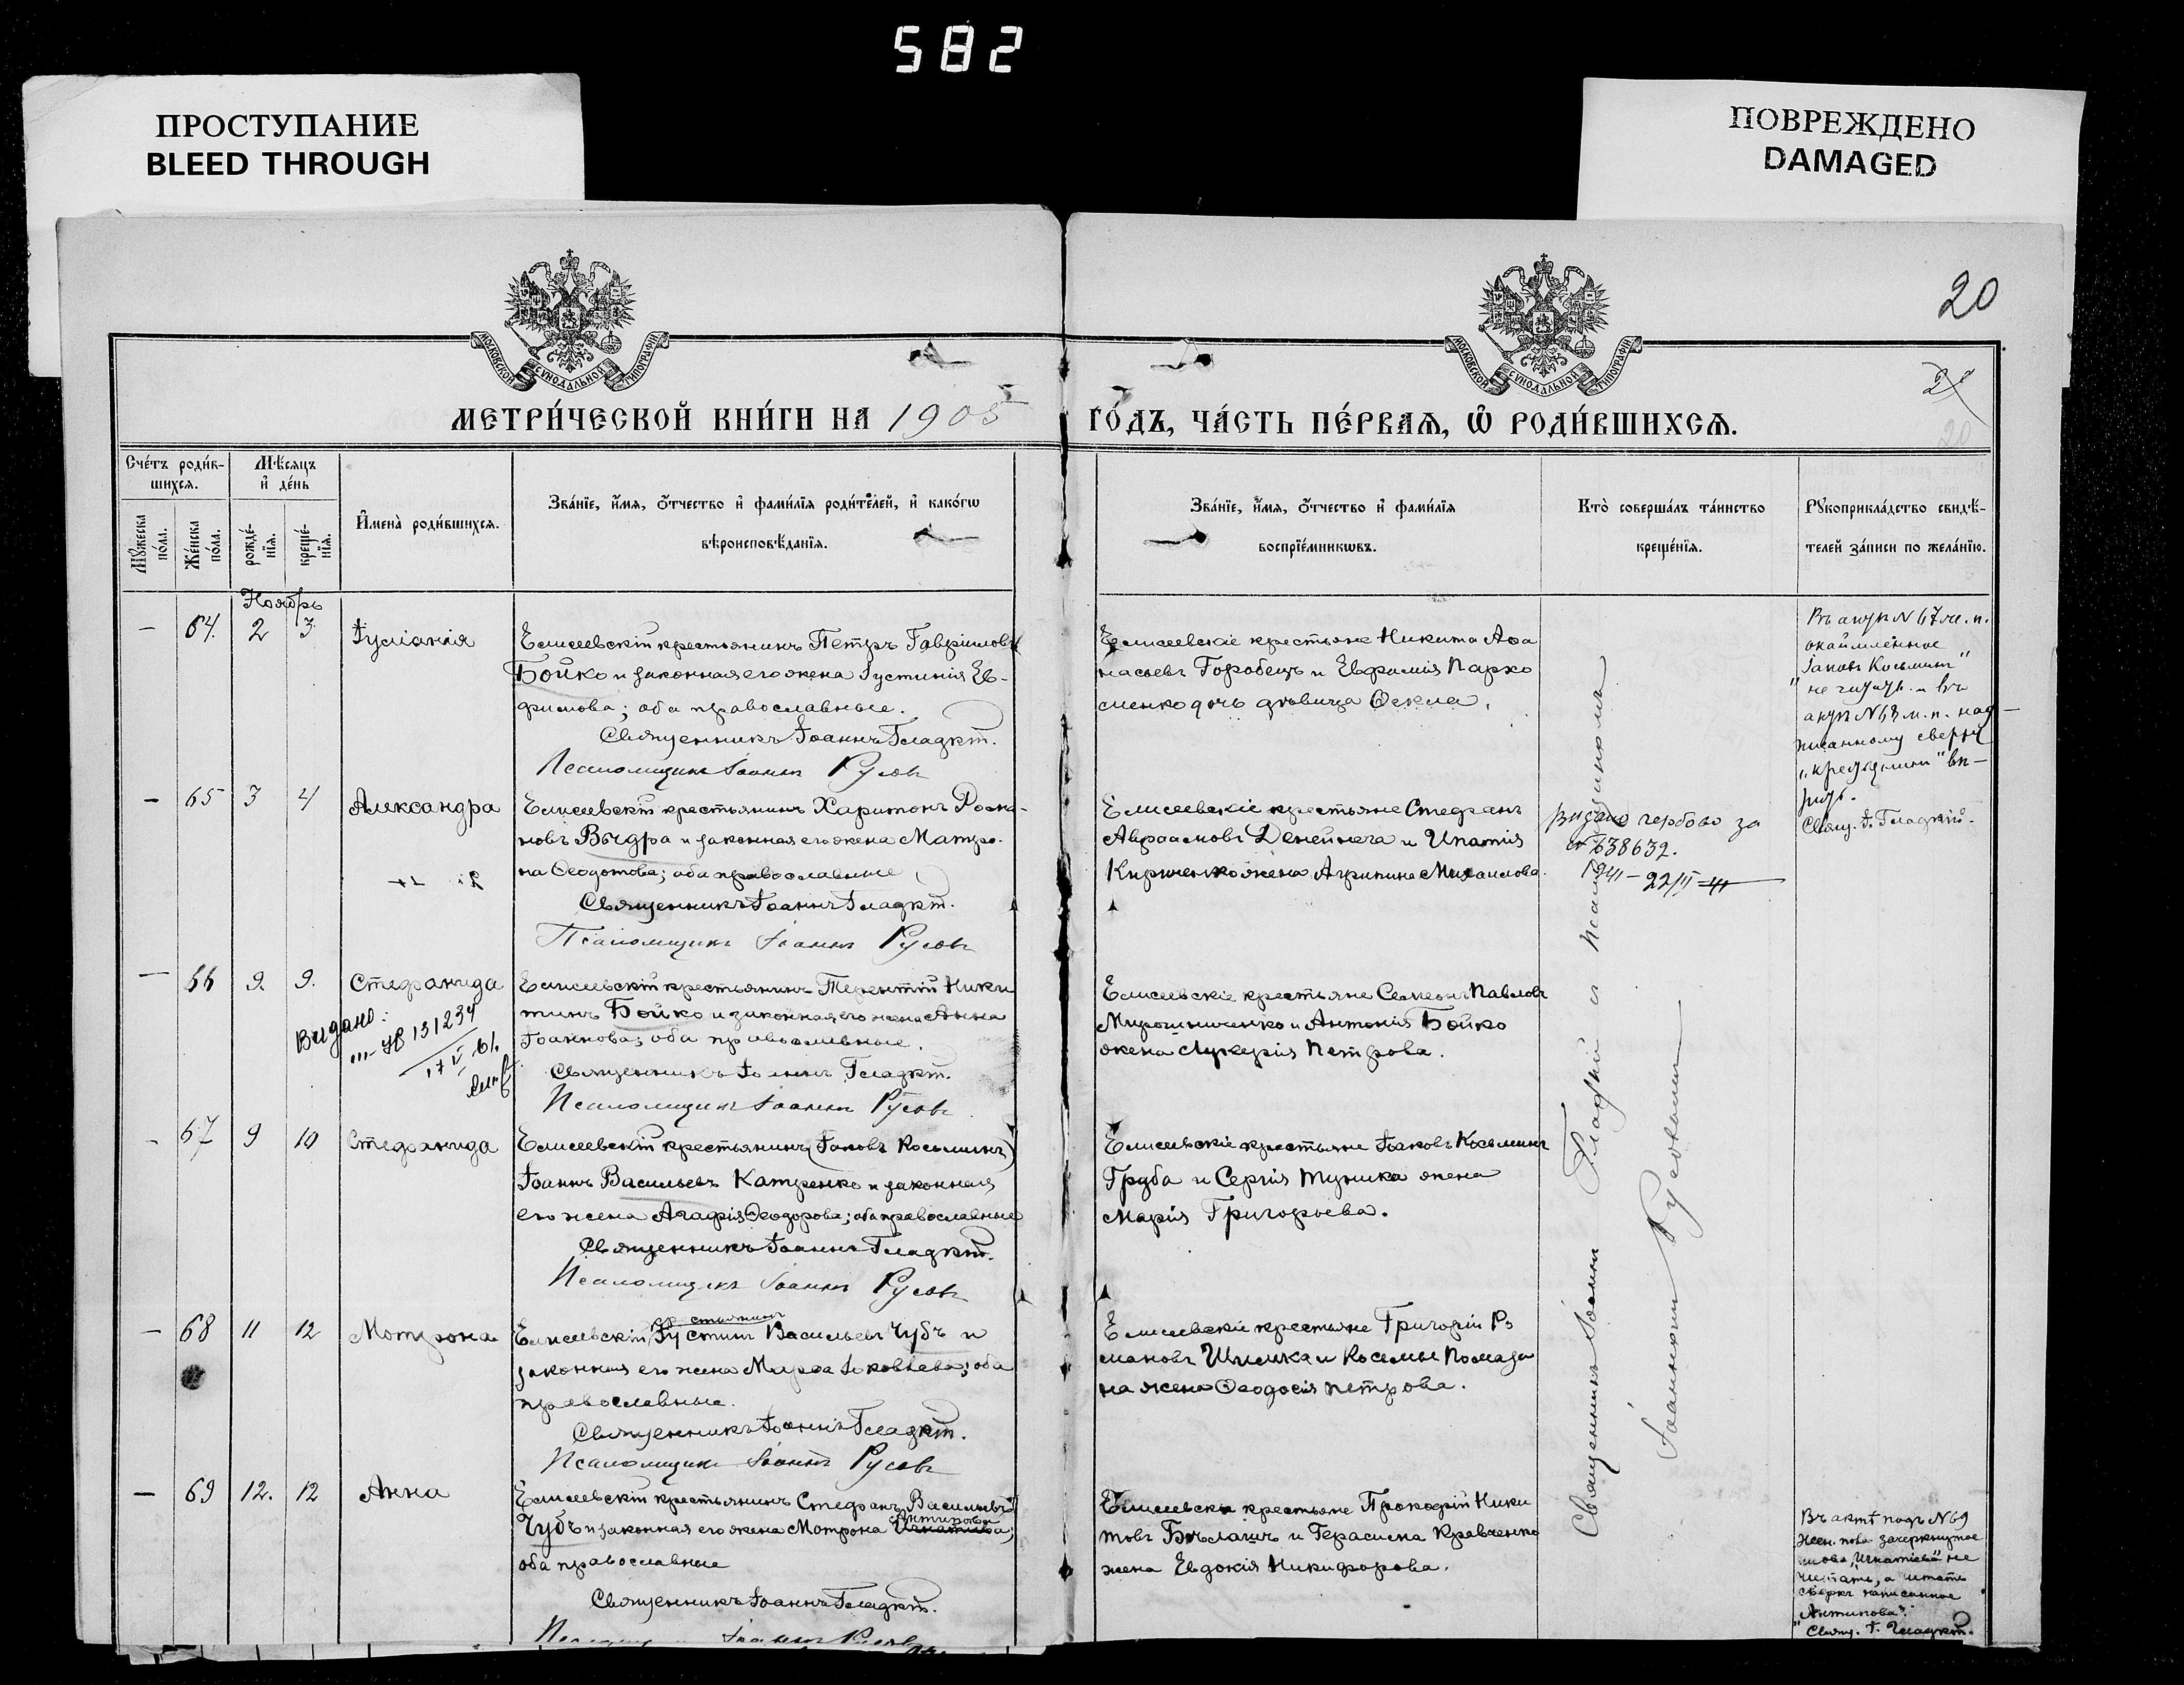 582
ПРОСТУПАНИЕ
BLEED THROUGH
ПОВРЕЖДЕНО
DAMAGED
20
МОСКОВСКОЙ СѴНОДАЛЬНОЙ ТИПОГРАФІИ
МОСКОВСКОЙ СѴНОДАЛЬНОЙ ТИПОГРАФІИ
20
МЕТРИ́ЧЕСКОЙ КНИ́ГИ НА 1905 ГО́ДЪ, ЧА́СТЬ ПЕ́РВАѦ, Ѽ РОДИ́ВШИХСѦ.
Счетъ роди́в-
шихсѧ.
Мꙋ́жеска по́ла.
Же́нска по́ла.
Мѣ́сѧцъ
и҆ де́нь
рожде́-
нїѧ.
креще́-
нїѧ.
И҆мена̀ роди́вшихсѧ.
Зва́нїе, и҆́мѧ, ѻ҆́тчество и҆ фами́лїѧ роди́телей, и҆ како́гѡ
вѣроисповѣ́данїѧ.
Зва́нїе, и҆́мѧ, ѻ҆́тчество и҆ фами́лїѧ
воспрїе́мникѡвъ.
Кто̀ соверша́лъ та́инство
креще́нїѧ.
Рꙋкоприкла́дство свидѣ́-
телей за́писи по жела́нїю.
Ноябрь
– 64. 2 3 Іуліанія
Елисеевскій крестьянинъ Петръ Гавріиловъ
Бойко и законная его жена Іустинія Ев-
фимова; оба православные.
Священникъ Іоаннъ Гладкій.
Псаломщикъ Іоаннъ Русовъ
Елисеевскіе крестьяне Никита Афа
насьевъ Горобецъ и Евфимія Пархо
менко дочь дѣвица Ѳекла.
Въ актѣ N 67 ж. п.
окаймленное
"Іаковъ Косьминъ"
не читать и въ
актѣ N 68 ж. п. над-
писанному сверху
"крестьянинъ" вѣ-
рить.
Свящ. І. Гладкій.
– 65 3 4 Александра
Елисеевскій крестьянинъ Харитонъ Рома-
новъ Выдра и законная его жена Матро-
на Ѳеодотова; оба православные
Священникъ Іоаннъ Гладкій.
Псаломщикъ Іоаннъ Русовъ
Елисеевскіе крестьяне Стефанъ
Авраамовъ Денейнега и Ипатія
Кириченко жена Агрипина Михаилова.
за
№ 638632.
– 66 9. 9. Стефанида
Видано:
131234
Елисеевскій крестьянинъ Терентій Ники
тинъ Бойко и законная его жена Анна
Іоаннова; оба православные.
Священникъ Іоаннъ Гладкій.
Псаломщикъ Іоаннъ Русовъ
Елисеевскіе крестьяне Симеонъ Павловъ
Мирошниченко и Антонія Бойко
жена Лукерія Петрова.
– 67 9 10 Стефанида
Елисеевскій крестьянинъ (Іаковъ Косьминъ)
Іоаннъ Васильевъ Катренко и законная
его жена Агафія Ѳеодорова; оба православные
Священникъ Іоаннъ Гладкій.
Псаломщикъ Іоаннъ Русовъ
Елисеевскіе крестьяне Іаковъ Косьминъ
Груба и Сергія Тупика жена
Марія Григорьева.
– 68 11 12 Мотрона
крестьянинъ
Елисеевскій Іустинъ Васильевъ Чубъ и
законная его жена Марфа Іаковлева; оба
православные.
Священникъ Іоаннъ Гладкій.
Псаломщикъ Іоаннъ Русовъ
Елисеевскіе крестьяне Григорій Ро
мановъ Шпилька и Косьмы Помаза
на жена Ѳеодосія Петрова.
– 69 12. 12 Анна
Елисеевскій крестьянинъ Стефанъ Васильевъ
Антипова
Чубъ и законная его жена Мотрона Игнатіева;
оба православные
Священникъ Іоаннъ Гладкій.
Псаломщикъ Іоаннъ Русовъ
Елисеевскіе крестьяне Прокофій Ники
товъ Бѣлашъ и Герасима Кравченко
жена Евдокія Никифорова.
Священникъ Іоаннъ Гладкій и псаломщикомъ
Іоанномъ Русовымъ
Въ актѣ подъ N 69
жен. пола зачеркнутое
слово "Игнатіева" не
читать, а читать
сверхъ написанное
"Антипова".
Свящ. І. Гладкій.